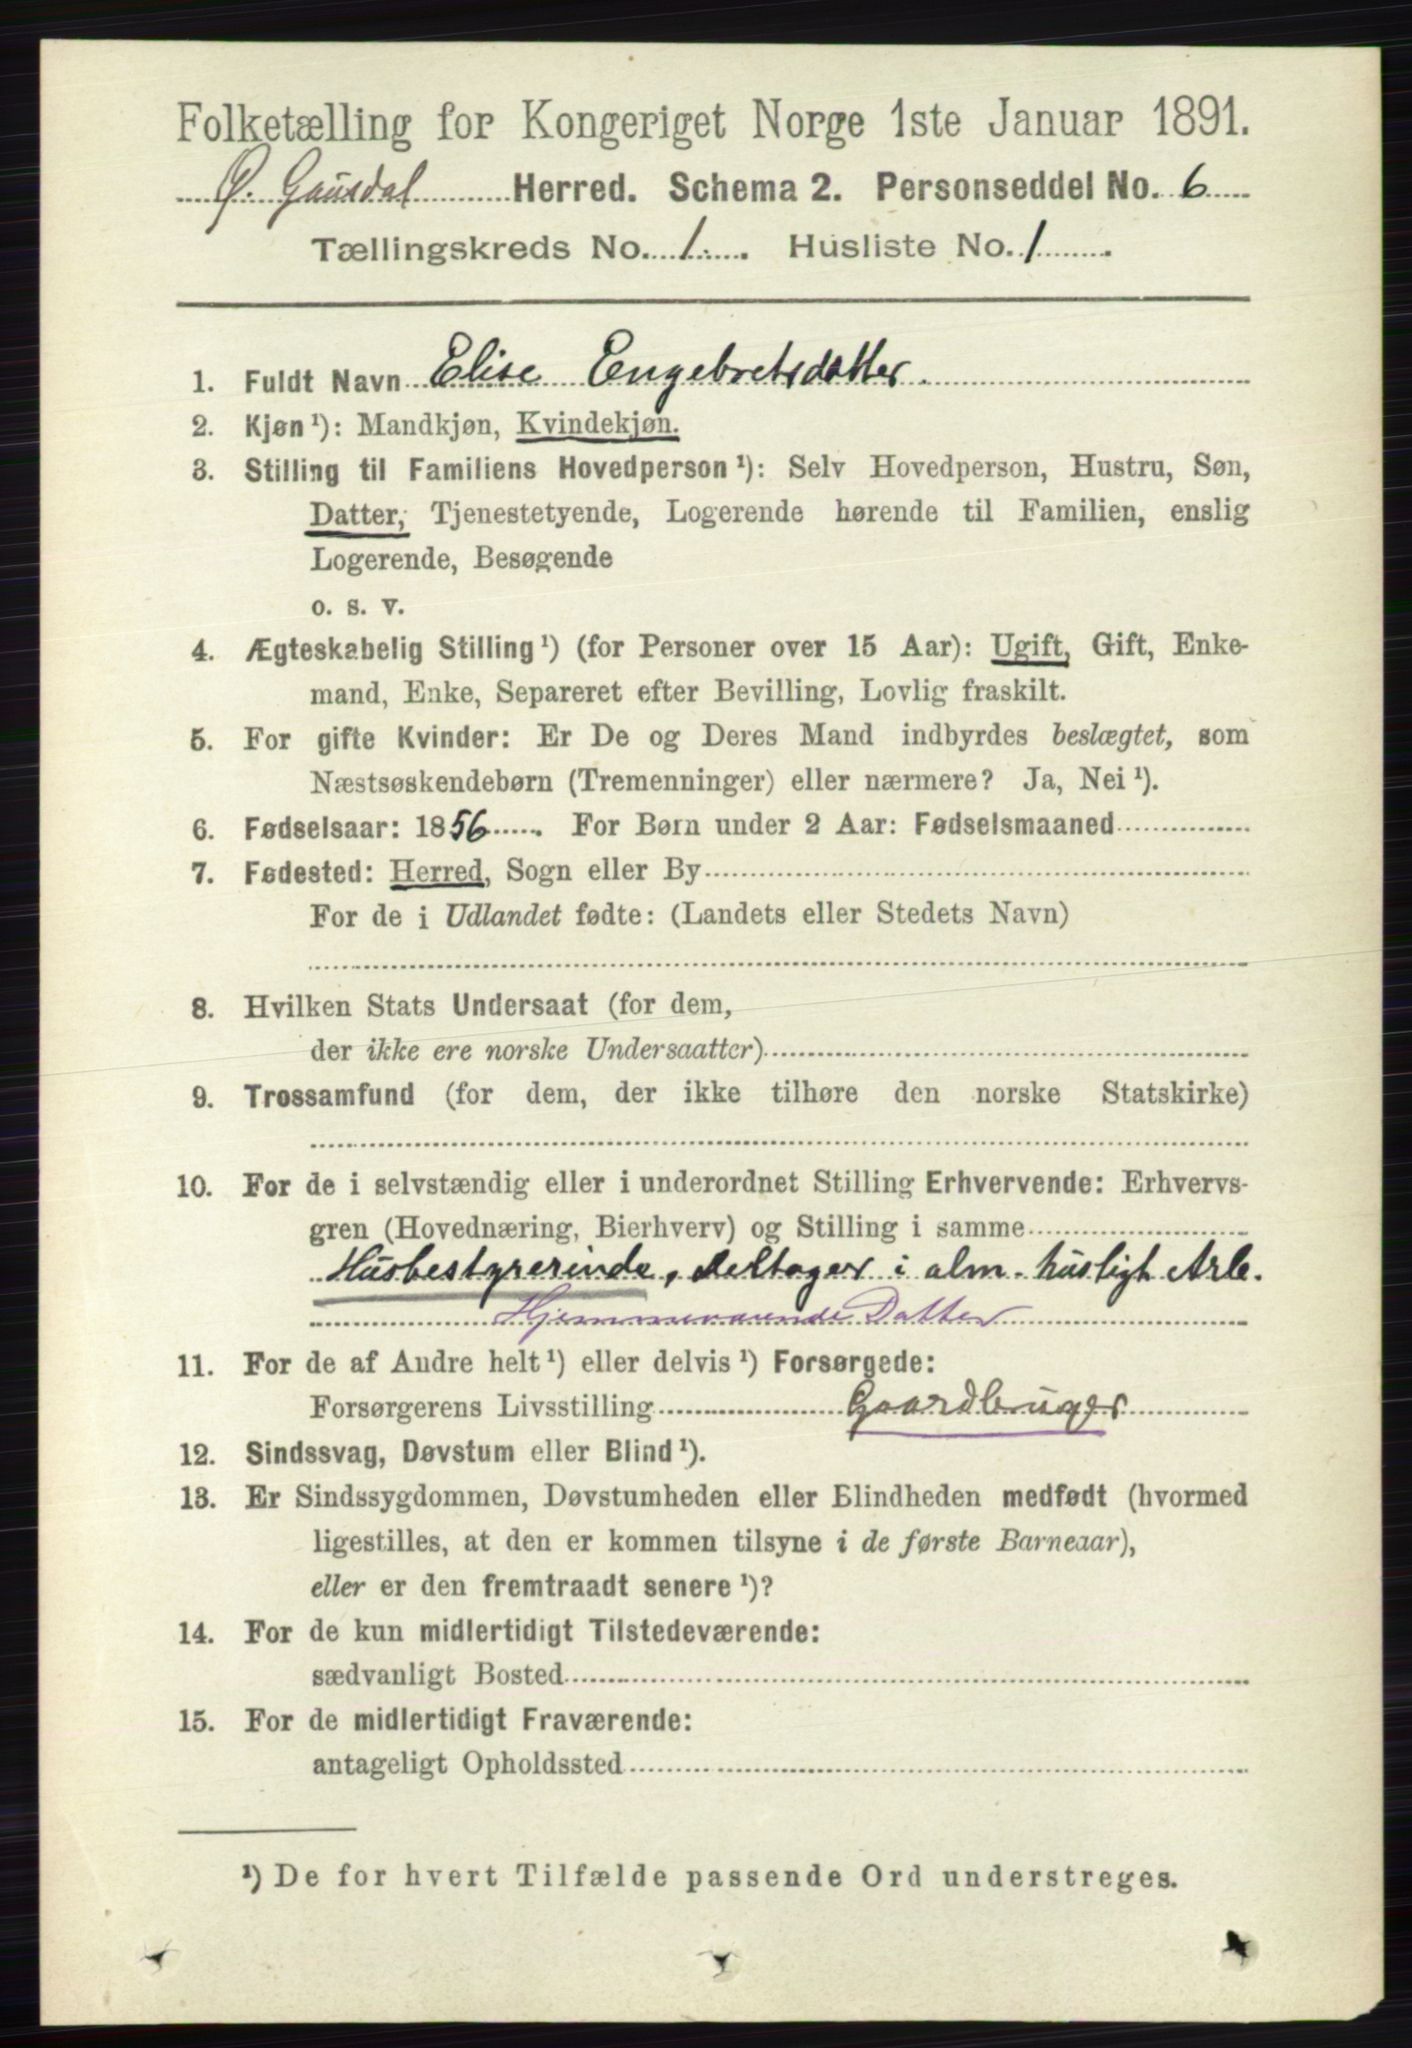 Folketælling for Kongeriget Norge 1ste Januar 1891.
Ø. Gausdal Herred. Schema 2. Personseddel No. 6
Tællingskreds No. 1. Husliste No. 1
1. Fuldt Navn Elise Engebretsdatter.
2. Kjøn¹): Mandkjøn, Kvindekjøn.
3. Stilling til Familiens Hovedperson¹): Selv Hovedperson, Hustru, Søn,
Datter, Tjenestetyende, Logerende hørende til Familien, enslig
Logerende, Besøgende
o. s. v.
4. Ægteskabelig Stilling¹) (for Personer over 15 Aar): Ugift, Gift, Enke-
mand, Enke, Separeret efter Bevilling, Lovlig fraskilt.
5. For gifte Kvinder: Er De og Deres Mand indbyrdes beslægtet, som
Næstsøskendebørn (Tremenninger) eller nærmere? Ja, Nei¹).
6. Fødselsaar: 1856. For Børn under 2 Aar: Fødselsmaaned
7. Fødested: Herred, Sogn eller By
For de i Udlandet fødte: (Landets eller Stedets Navn)
8. Hvilken Stats Undersaat (for dem,
der ikke ere norske Undersaatter)
9. Trossamfund (for dem, der ikke tilhøre den norske Statskirke)
10. For de i selvstændig eller i underordnet Stilling Erhvervende: Erhvervs-
gren (Hovednæring, Bierhverv) og Stilling i samme
Husbestyrerinde, deltager i alm. husligt Arb.
Hjemmeværende Datter
11. For de af Andre helt¹) eller delvis¹) Forsørgede:
Forsørgerens Livsstilling Gaardbruger
12. Sindssvag, Døvstum eller Blind¹).
13. Er Sindssygdommen, Døvstumheden eller Blindheden medfødt (hvormed
ligestilles, at den er kommen tilsyne i de første Barneaar),
eller er den fremtraadt senere¹)?
14. For de kun midlertidigt Tilstedeværende:
sædvanligt Bosted
15. For de midlertidigt Fraværende:
antageligt Opholdssted
¹) De for hvert Tilfælde passende Ord understreges.